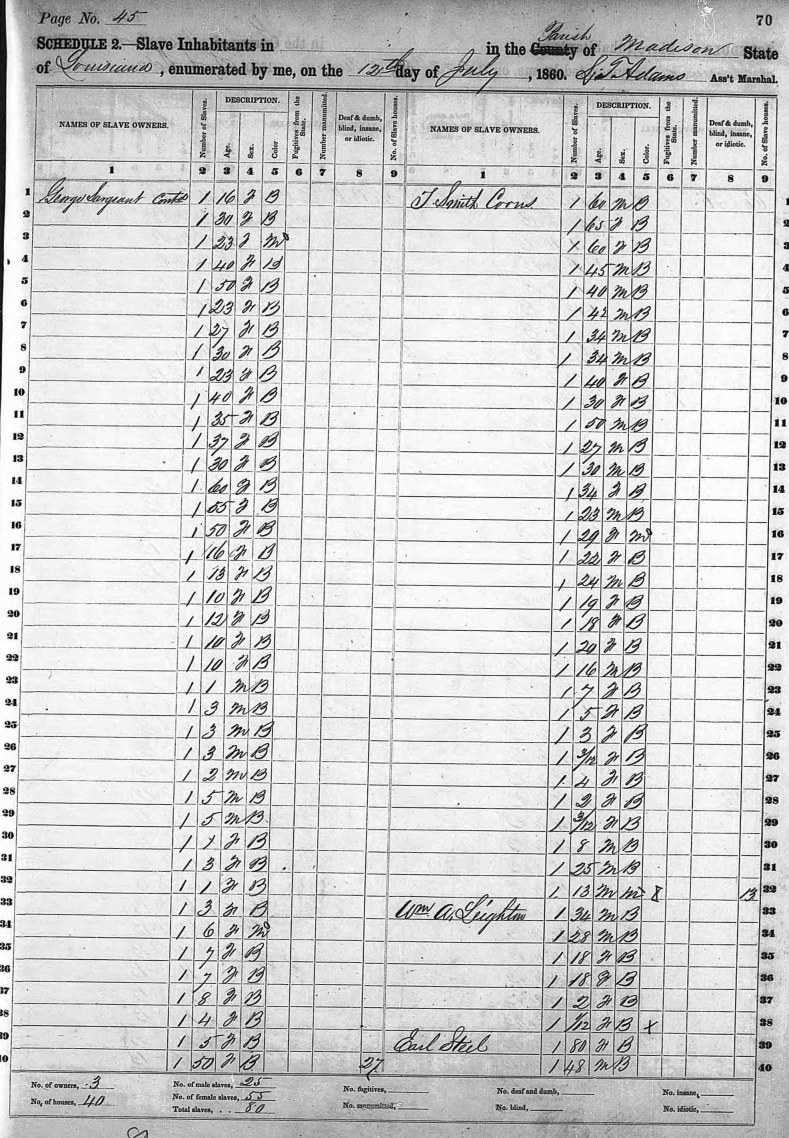 Page No. 45
70
SCHEDULE 2.—Slave Inhabitants in in the County Parish of Madison State
of Louisiana, enumerated by me, on the 12th day of July, 1860. Adams Ass't Marshal.
NAMES OF SLAVE OWNERS. Number of Slaves. DESCRIPTION. Age. Sex. Color Fugitives from the State. Number manumitted. Deaf & dumb, blind, insane, or idiotic. No. of Slave houses. NAMES OF SLAVE OWNERS. Number of Slaves. DESCRIPTION. Age. Sex. Color. Fugitives from the State. Number manumitted. Deaf & dumb, blind, insane, or idiotic. No. of Slave houses.
1 2 3 4 5 6 7 8 9 1 2 3 4 5 6 7 8 9
1 George Sargeant Contd 1 16 F B T Smith Coons 1 60 M B 1
2 1 30 F B 1 65 F B 2
3 1 23 F M 1 60 F B 3
4 1 40 F B 1 45 M B 4
5 1 50 F B 1 40 M B 5
6 1 23 F B 1 42 M B 6
7 1 27 F B 1 34 M B 7
8 1 30 F B 1 34 M B 8
9 1 23 F B 1 40 F B 9
10 1 40 F B 1 30 F B 10
11 1 35 F B 1 50 M B 11
12 1 37 F B 1 27 M B 12
13 1 30 F B 1 30 M B 13
14 1 60 F B 1 34 F B 14
15 1 55 F B 1 23 M B 15
16 1 50 F B 1 29 F M 16
17 1 16 F B 1 22 F B 17
18 1 13 F B 1 24 M B 18
19 1 10 F B 1 19 F B 19
20 1 12 F B 1 18 F B 20
21 1 10 F B 1 20 F B 21
22 1 10 F B 1 16 M B 22
23 1 1 M B 1 7 F B 23
24 1 3 M B 1 5 F B 24
25 1 3 M B 1 3 F B 25
26 1 3 M B 1 3/12 F B 26
27 1 2 M B 1 4 F B 27
28 1 5 M B 1 2 F B 28
29 1 5 M B 1 3/12 F B 29
30 1 F B 1 8 M B 30
31 1 3 F B 1 25 M B 31
32 1 1 F B 1 13 M M 13 32
33 1 3 F B Wm A. Leighton 1 34 M B 33
34 1 6 F M 1 28 M B 34
35 1 7 F B 1 18 F B 35
36 1 7 F B 1 18 F B 36
37 1 8 F B 1 2 F B 37
38 1 4 F B 1 1/12 F B x 38
39 1 5 F B Earl Steel 1 80 F B 39
40 1 50 F B 27 1 48 M B 40
No. of owners, 3 No. of male slaves, 25 No. fugitives, No. deaf and dumb, No. insane,
No. of houses, 40 No. of female slaves, 55 No. manumitted, No. blind, No. idiotic,
Total slaves, 80